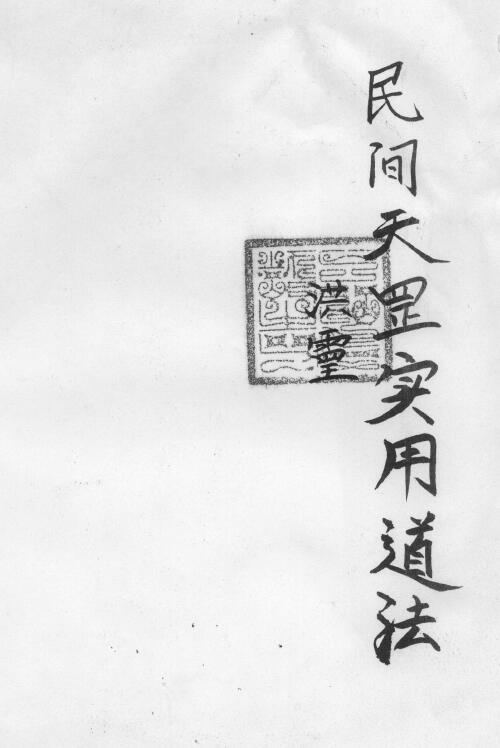 民间天罡实用道法
洪靈